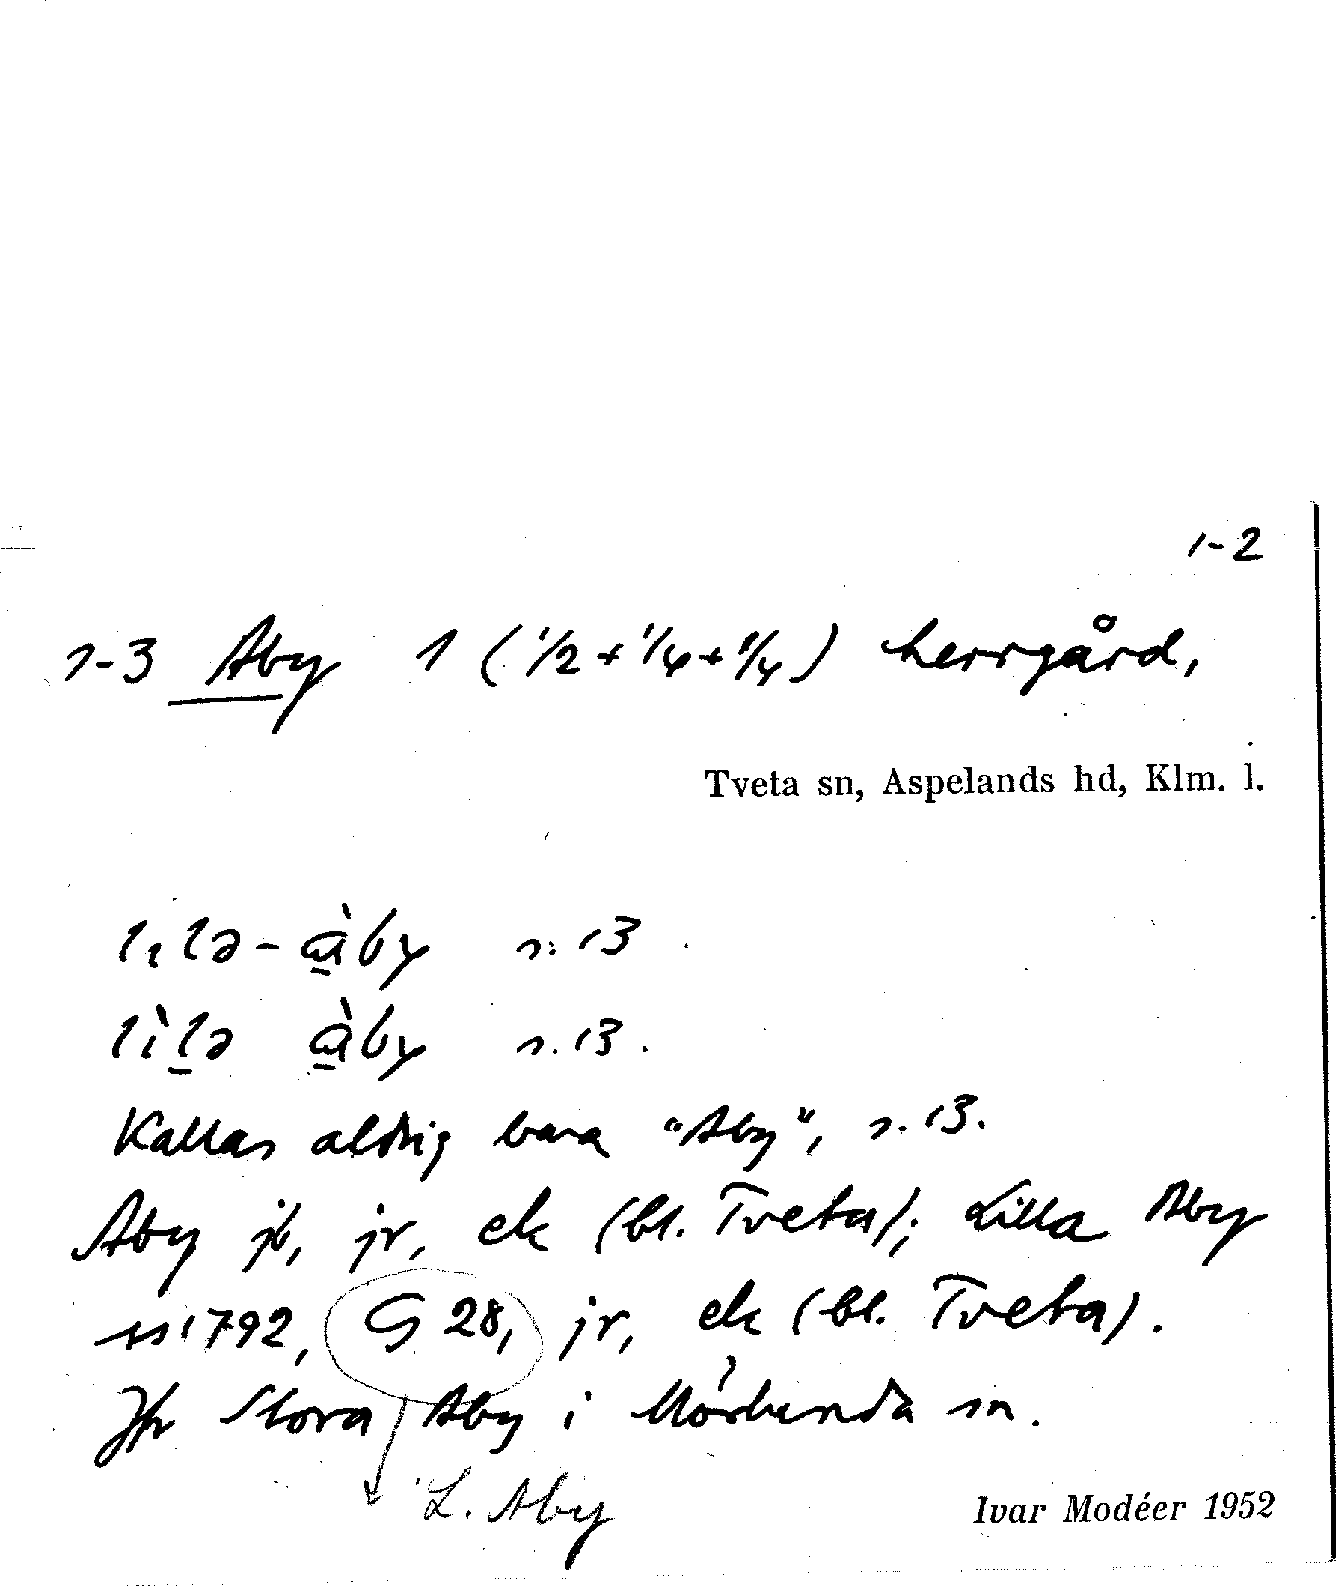 1-2
1-3 Aby 1 (1/2+1/4+1/4) herrgård,
Tveta sn, Aspelands hd, Klm. l.
lılə-à̱by s. 13
lìḻə à̱by s. 13.
Kallas aldrig bara "Aby", s. 13.
Aby jb, jr, ek (bl. Tveta); Lilla Aby
1792, G 28, jr, ek (bl. Tveta).
Jfr Stora Aby i Mörlunda sn.
L. Aby
Ivar Modéer 1952